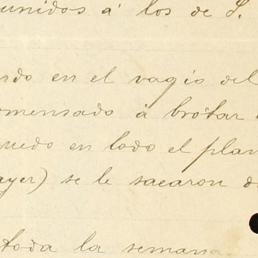 unidos á los de S.
rdo en el vagío del
omensado á brotar
uedo en todo el plan
ayer) se le sacaron d
toda la semana